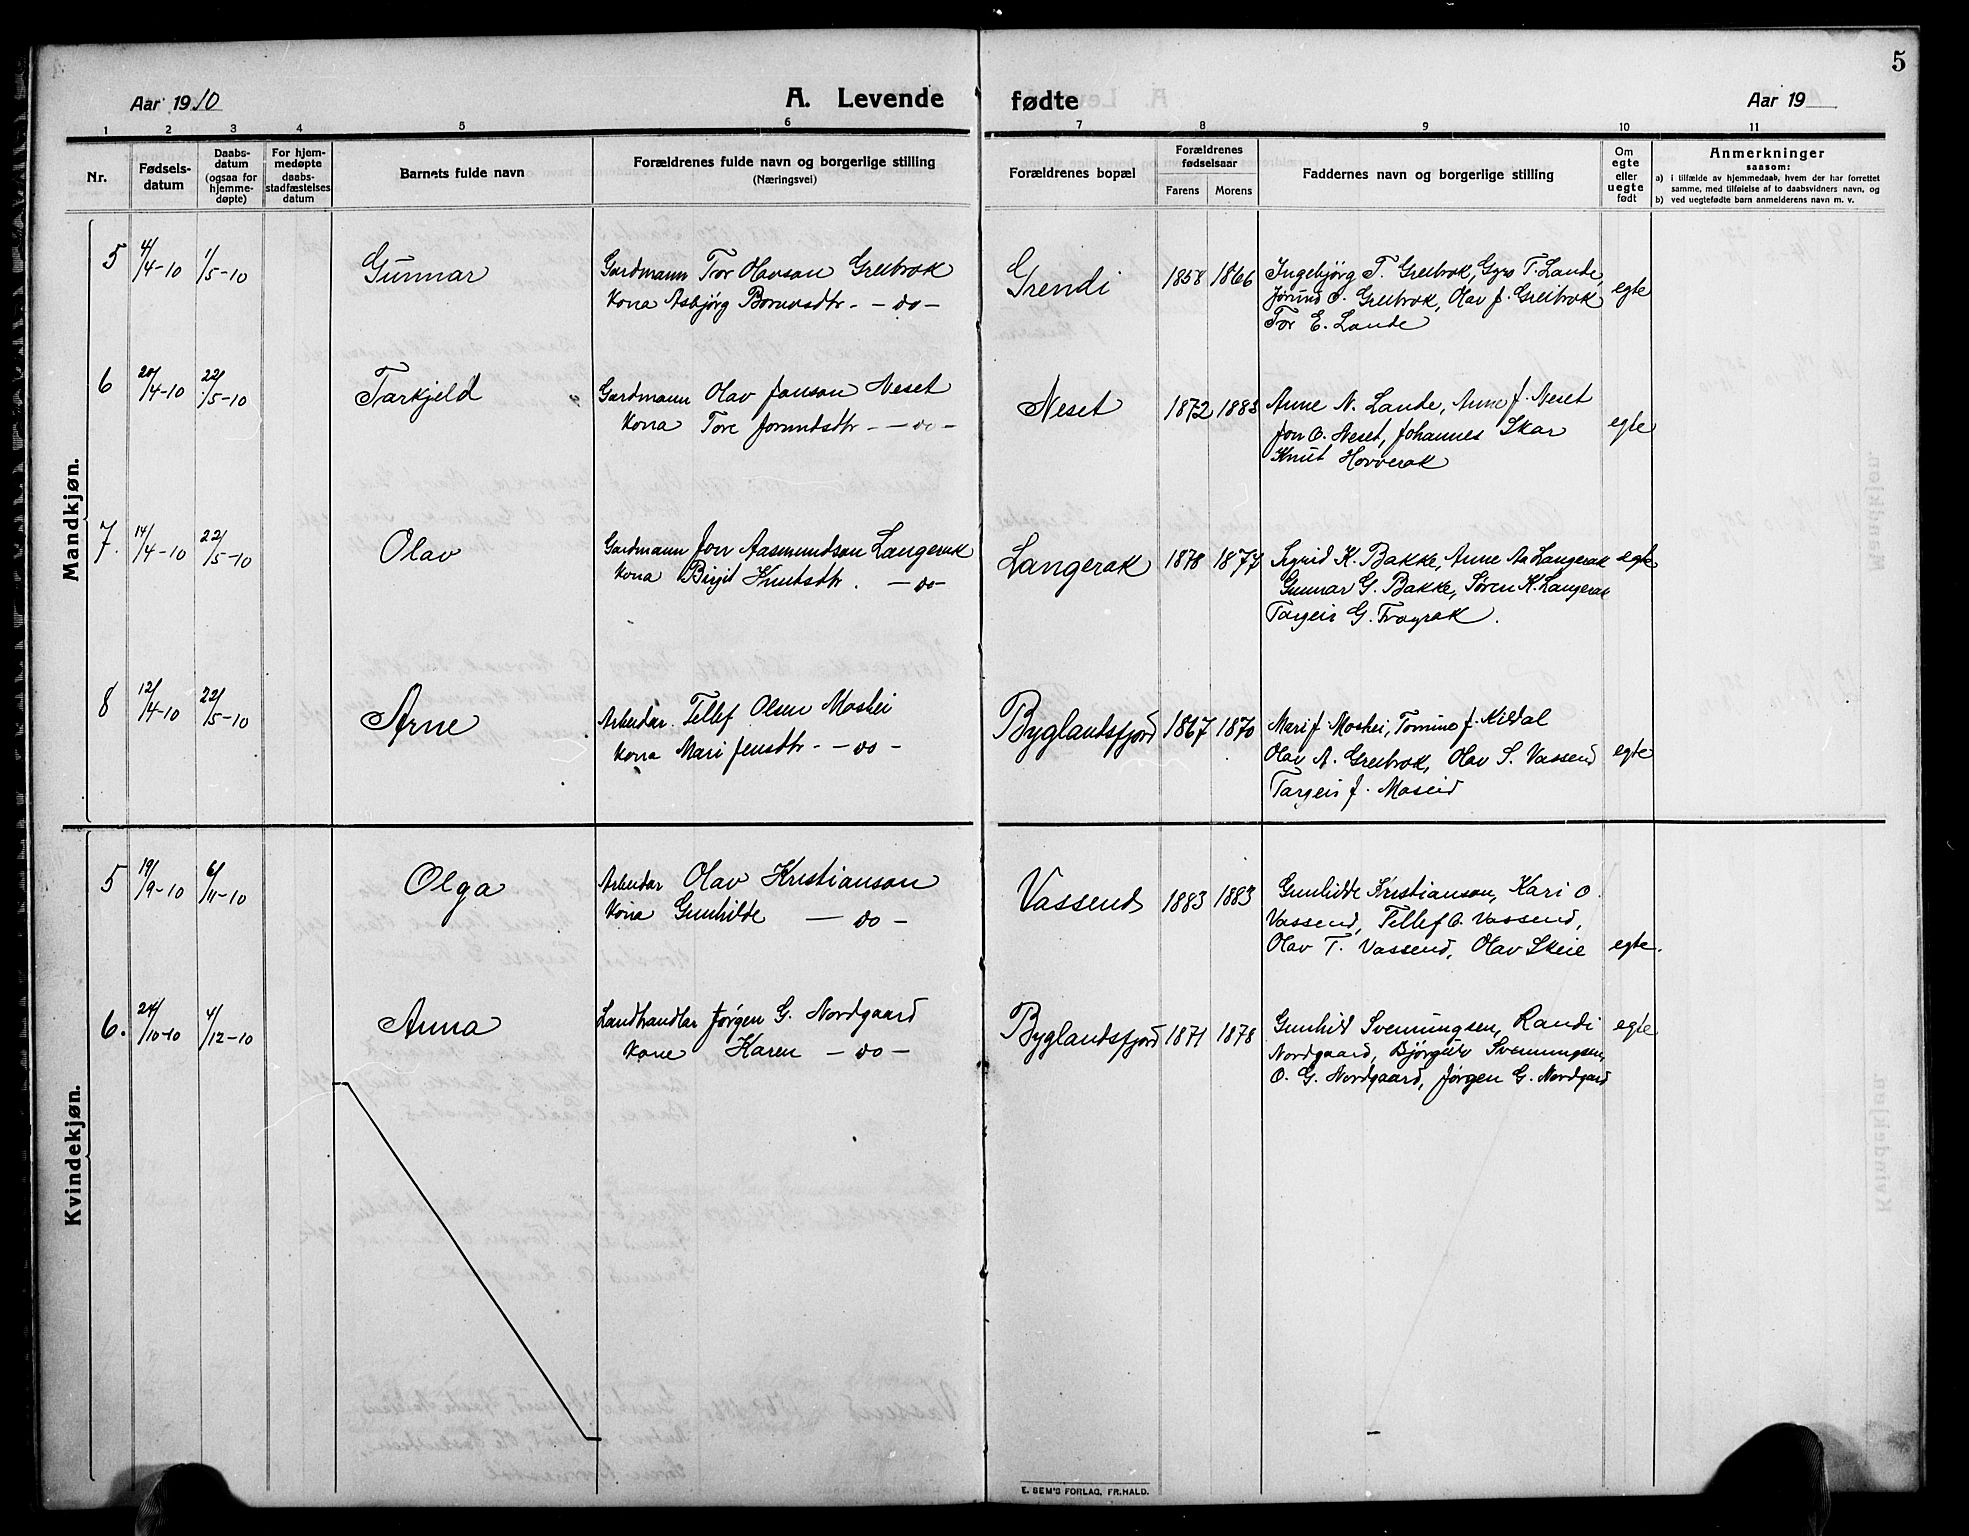 5
Aar 1910
A. Levende fødte
Aar 19
1 2 3 4 5 6 7 8 9 10 11
Nr.
Fødsels-
datum
Daabs-
datum
(ogsaa for
hjemme-
døpte)
For hjem-
medøpte
daabs-
stadfæstelses
datum
Barnets fulde navn
Forældrenes fulde navn og borgerlige stilling
(Næringsvei)
Forældrenes bopæl
Forældrenes
fødselsaar
Farens Morens
Faddernes navn og borgerlige stilling
Om
egte
eller
uegte
født
Anmerkninger
saasom:
a) i tilfælde av hjemmedaab, hvem der har forrettet
samme, med tilføielse av to daabsvidners navn, og
b) ved uegtefødte barn anmelderens navn m. v.
Mandkjøn.
5 4/4-10 1/5-10 Gunnar
Gardmann Tor Olavson Greibrok
Kona Asbjørg - do -
Grendi 1858 1866
Ingebjørg T. Greibrok, Gyro T. Lande,
Jørund O. Greibrok, Olav J. Greibrok
Tor E. Lande
egte
6 20/4-10 22/5-10 Tarkjeld
Gardmann Olav Jonson Neset
Kona Tore Jorundsdtr - do -
Neset 1872 1883
Anne N. Lande, Anne J. Neset
Jon O. Neset, Johannes Skar
Knut Hovverak
egte
7. 14/4-10 22/5-10 Olav
Gardmann Jon Aasmundson Langerak
Kona Birgit Knutsdtr. - do -
Langerak 1878 1877
Sigrid K. Bakke, Anne Aa Langerak
Gunnar G. Bakke, Søren K. Langerak
Targeis G. Frøyrak.
egte
8 12/4-10 22/5-10 Arne
Arbeidar Tellef Olsen Moskei
Kona Mari Jensdtr - do -
Byglandsfjord 1867 1870
Mari J. Moskei, J. Kildal
Olav A. Greibrok, Olav S. Vassend
Targeis J. Moseid
egte
Kvindekjøn.
5 19/9-10 6/11-10 Olga
Arbeidar Olav Kristianson
Kona Gunhilde - do -
Vassend 1883 1883
Gunhilde Kristianson, Kari O.
Vassend, Tellef O. Vassend,
Olav T. Vassend, Olav Skeie
egte.
6. 24/10-10 4/12-10 Anna
Landhandlar Jørgen G. Nordgaard
Kone Karen - do -
Byglandsfjord 1871 1878
Gunhild Svenningsen, Randi
Nordgaard, Bjørgulv Svenningsen,
O. G. Nordgaard, Jørgen G. Nordgard
egte
E. SEM'S FORLAG, FR.HALD.